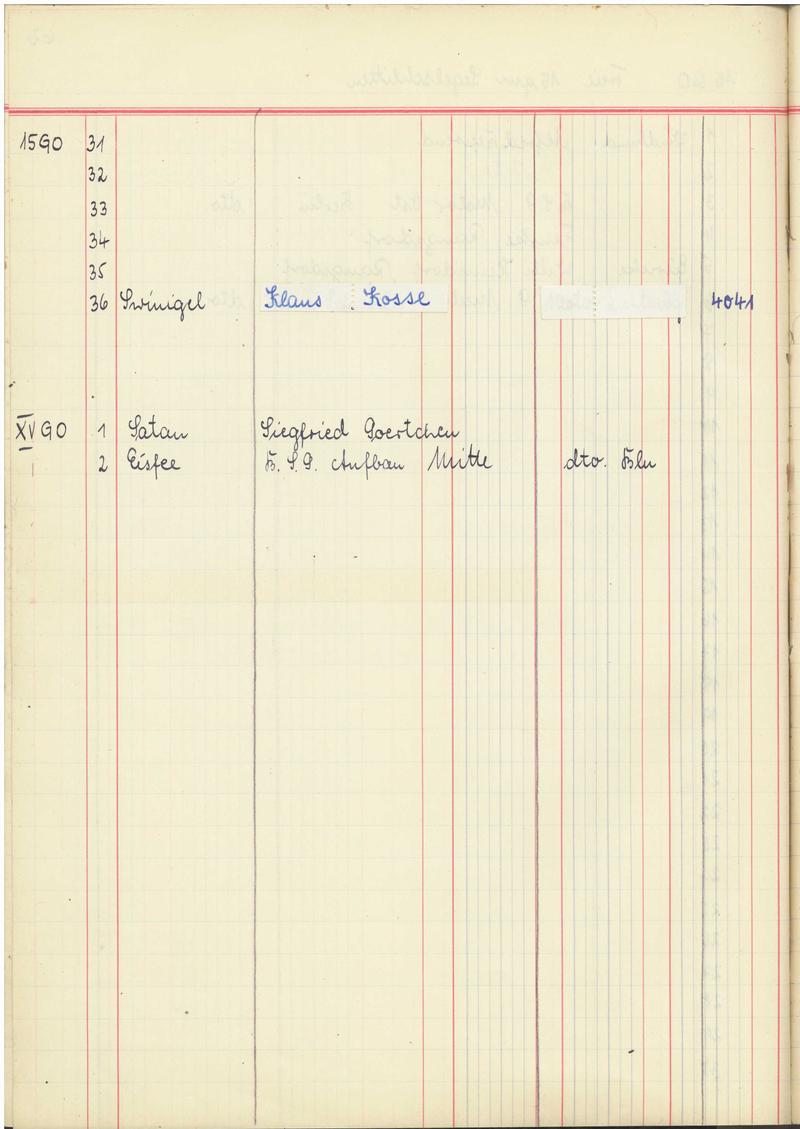 15GO 31
32
33
34
35
36 Swinigel Klaus Kosse 4041
XVGO 1 Satan Siegfried Goertchen
2 Eisfee B.S.G. Aufbau Mitte dto. Bln